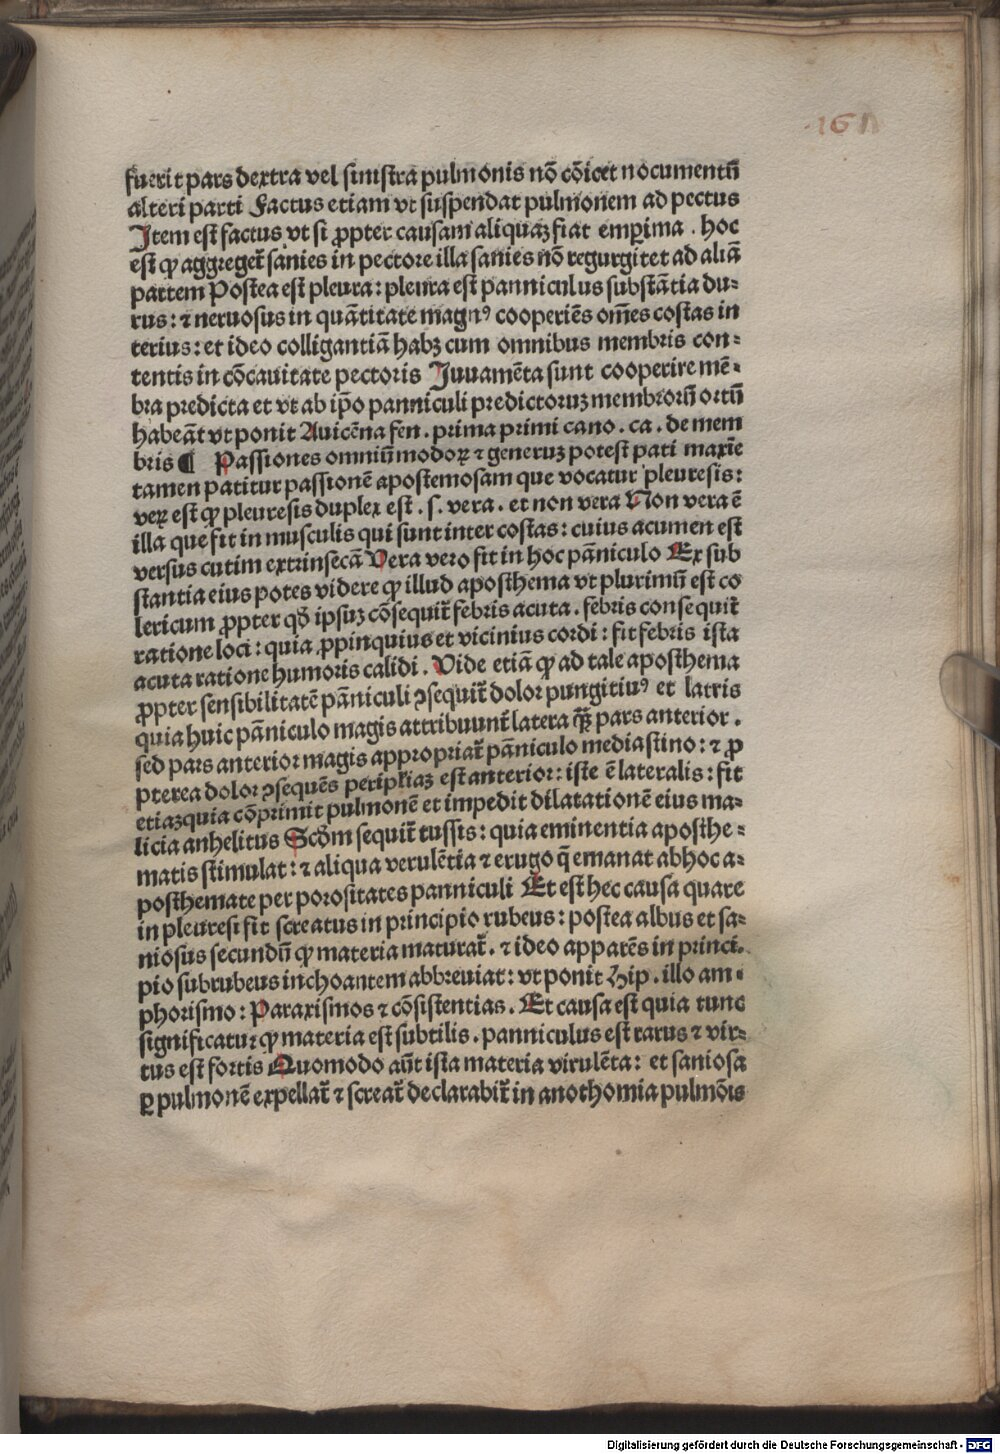 161
fuerit pars dextra vel sinistra pulmonis nõ cõicet nocumentũ
alteri parti Factus etiam vt suspendat pulmonem ad pectus
Item est factus vt si ꝓpter causam aliquaꝫ fiat empima . hoc
est ꝙ aggreget᷑ sanies in pectore illa sanies nõ regurgitet ad aliã
partem Postea est pleura : pleura est panniculus substãtia du⸗
rus : ⁊ neruosus in quãtitate magnꝰ cooperiẽs om̃es costas in
terius : et ideo colligantiã habꝫ cum omnibus membris con⸗
tentis in cõcauitate pectoris Juuamẽta sunt cooperire mẽ⸗
bra predicta et vt ab ip̃o panniculi predictoruꝫ membroruũ ortũ
habeãt vt ponit Auicẽna fen . prima primi cano . ca . de mem
bris ¶ Passiones omniũ modoꝝ ⁊ generuꝫ potest pati maxĩe
tamen patitur passionẽ apostemosam que vocatur pleuresis :
veꝝ est ꝙ pleuresis duplex est . s . vera . et non vera Non vera ẽ
illa que fit in musculis qui sunt inter costas : cuius acumen est
versus cutim extrinsecã Vera vero fit in hoc pãniculo Ex sub
stantia eius potes videre ꝙ illud aposthema vt plurimũ est co
lericum ꝓpter qð ipsuꝫ cõsequit᷑ febris acuta . febris consequit᷑
ratione loci : quia ꝓpinquius et vicinius cordi : fit febris ista
acuta ratione humoris calidi . Vide etiã ꝙ ad tale aposthema
ꝓpter sensibilitatẽ pãniculi ꝯsequit᷑ dolor pungitiuꝰ et latris
quia huic pãniculo magis attribuunt᷑ latera q̃ꝫ pars anterior .
sed pars anterior magis appropriat᷑ pãniculo mediastino : ⁊ ꝓ
pterea dolor ꝯsequẽs periplꝭiaꝫ est anterior : iste ẽ lateralis : fit
etiaꝫ quia cõprimit pulmonẽ et impedit dilatationẽ eius ma⸗
licia anhelitus Scðm sequit᷑ tussis : quia eminentia aposthe⸗
matis stimulat : ⁊ aliqua verulẽtia ⁊ erugo q̃ emanat ab hoc a⸗
posthemate per porositates panniculi Et est hec causa quare
in pleuresi fit screatus in principio rubeus : postea albus et sa⸗
niosus secundũ ꝙ materia maturat᷑ . ⁊ ideo apparẽs in princi⸗
pio subrubeus inchoantem abbreuiat : vt ponit Hip . illo am⸗
phorismo : Paraxismos ⁊ cõsistentias . Et causa est quia tunc
significatur ꝙ materia est subtilis . panniculus est rarus ⁊ vir⸗
tus est fortis Quomodo aũt ista materia virulẽta : et saniosa
ꝑ pulmonẽ expellat᷑ ⁊ screat᷑ declarabit᷑ in anothomia pulmõis
Digitalisierung gefördert durch die Deutsche Forschungsgemeinschaft - DFG